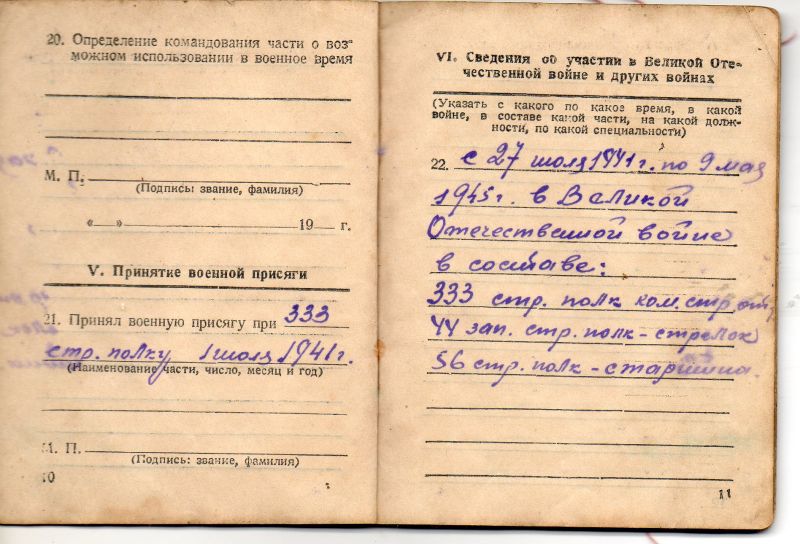 20. Определение командования части о воз-
можном использовании в военное время
М. П.
(Подпись: звание, фамилия)
«—» 19 г.
V. Принятие военной присяги
21. Принял военную присягу при 333
стр. полку 1 июля 1941 г.
(Наименование части, число, месяц и год)
М. П.
(Подпись: звание, фамилия)
10
VI. Сведения об участии в Великой Оте-
чественной войне и других войнах
(Указать с какого по какое время, в какой
войне, в составе какой части, на какой долж-
ности, по какой специальности)
22. с 27 июля 1941 г. по 9 мая
1945 г. в Великой
Отечественной войне
в составе:
333 стр. полк ком. стр. отд.
44 зап. стр. полк - стрелок
56 стр. полк - старшина.
11